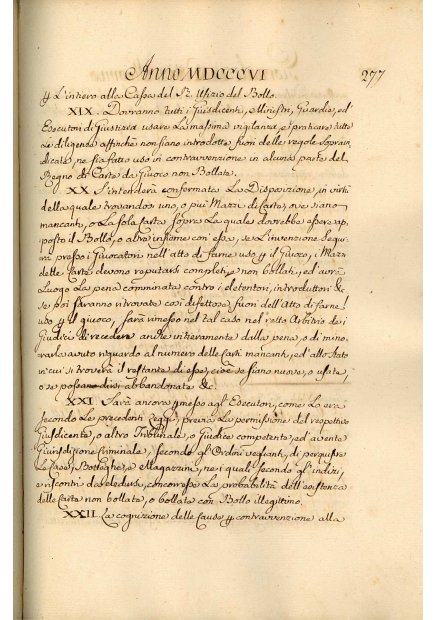 Anno MDCCCVI 277
ꝑ L'intiero alla Cassa del Sud.º Ufizio del Bollo.
XIX. Dovranno tutti i Giusdicenti, Ministri, Guardie, ed
Esecutori di Giustizia usare La massima vigilanza, e praticare tutte
Le diligenze affinche non siano introdotte fuori delle regole soprain
dicate, ne sia fatto uso in contravvenzione in alcuna parte del
Regno di Carte da Giuoco non Bollate.
XX. S'intenderà confermata La Disposizione, in virtù
della quale trovandosi uno, o più Mazzi di Carte, ove siano
mancanti, o La sola Carta sopra La quale dovrebbe essere ap,
posto il Bollo, o altre insieme con essa, se L'invenzione segui
rà presso i Giuocatori nell'atto di farne uso ꝑ il Giuoco, i Mazzi
delle Carte devono reputarsi completi, e non bollati, ed avrà
Luogo La pena comminata contro i detentori, introduttori &
se poi saranno ritrovate così difettose fuori dell'Atto di farne
uso ꝑ il giuoco, sarà rimesso nel tal caso nel retto Arbitrio dei
Giudici di recedere anche intieramente dalla pena, o di mino,
rarla avuto riguardo al numero delle Carte mancanti, ed allo Stato
in cui si troverà il restante di esse, cioè se siano nuove, o usate,
o se possano dirsi abbandonate &c.
XXI. Sarà ancora ꝑmesso agl'Esecutori, come Lo era
secondo Le precedenti Leggi, previa La permissione del respettivo
Giusdicente, o altro Tribunale, o Giudice competente, ed avente
Giurisdizione Criminale, secondo gl'Ordini veglianti, di perquisire
Le Case, Botteghe, e Magazzini, nei quali secondo gl'indizi,
e riscontri da dedursi, concorresse La probabilità dell'esistenza
delle Carte non bollate, o bollate con Bollo illegittimo.
XXII. La cognizione delle Cause ꝑ contravvenzione alla